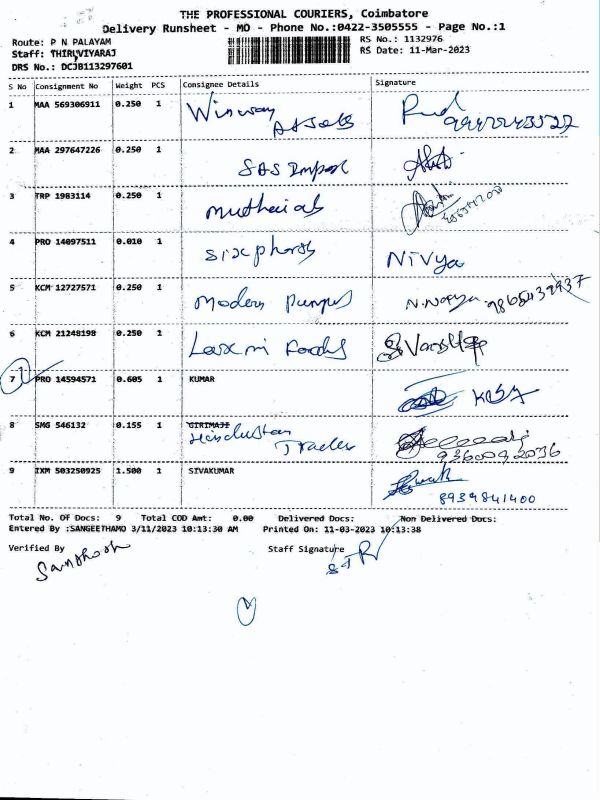 THE PROFESSIONAL COURIERS, Coimbatore
Delivery Runsheet - MO - Phone No.:0422-3505555 - Page No.:1
Route: P N PALAYAM RS No.: 1132976
Staff: THIRUVIYARAJ RS Date: 11-Mar-2023
DRS No.: DCJB113297601
S No Consignment No Weight PCS Consignee Details Signature
1 MAA 569306911 0.250 1 Winway Assets
2 MAA 297647226 0.250 1 SAS Impex
3 TRP 1983114 0.250 1
4 PRO 14097511 0.010 1 Sixphords Nivya
5 KCM 12727571 0.250 1 Modern Pumps 9865432937
6 KCM 21248198 0.250 1 Laxmi Foods
7 PRO 14594571 0.605 1 KUMAR
8 SMG 546132 0.155 1 GIRIMAJI
Hindustan Trader 9360092036
9 IXM 503250925 1.500 1 SIVAKUMAR
8939841400
Total No. Of Docs: 9 Total COD Amt: 0.00 Delivered Docs: Non Delivered Docs:
Entered By :SANGEETHAMO 3/11/2023 10:13:30 AM Printed On: 11-03-2023 10:13:38
Verified By Staff Signature
Santhosh STR